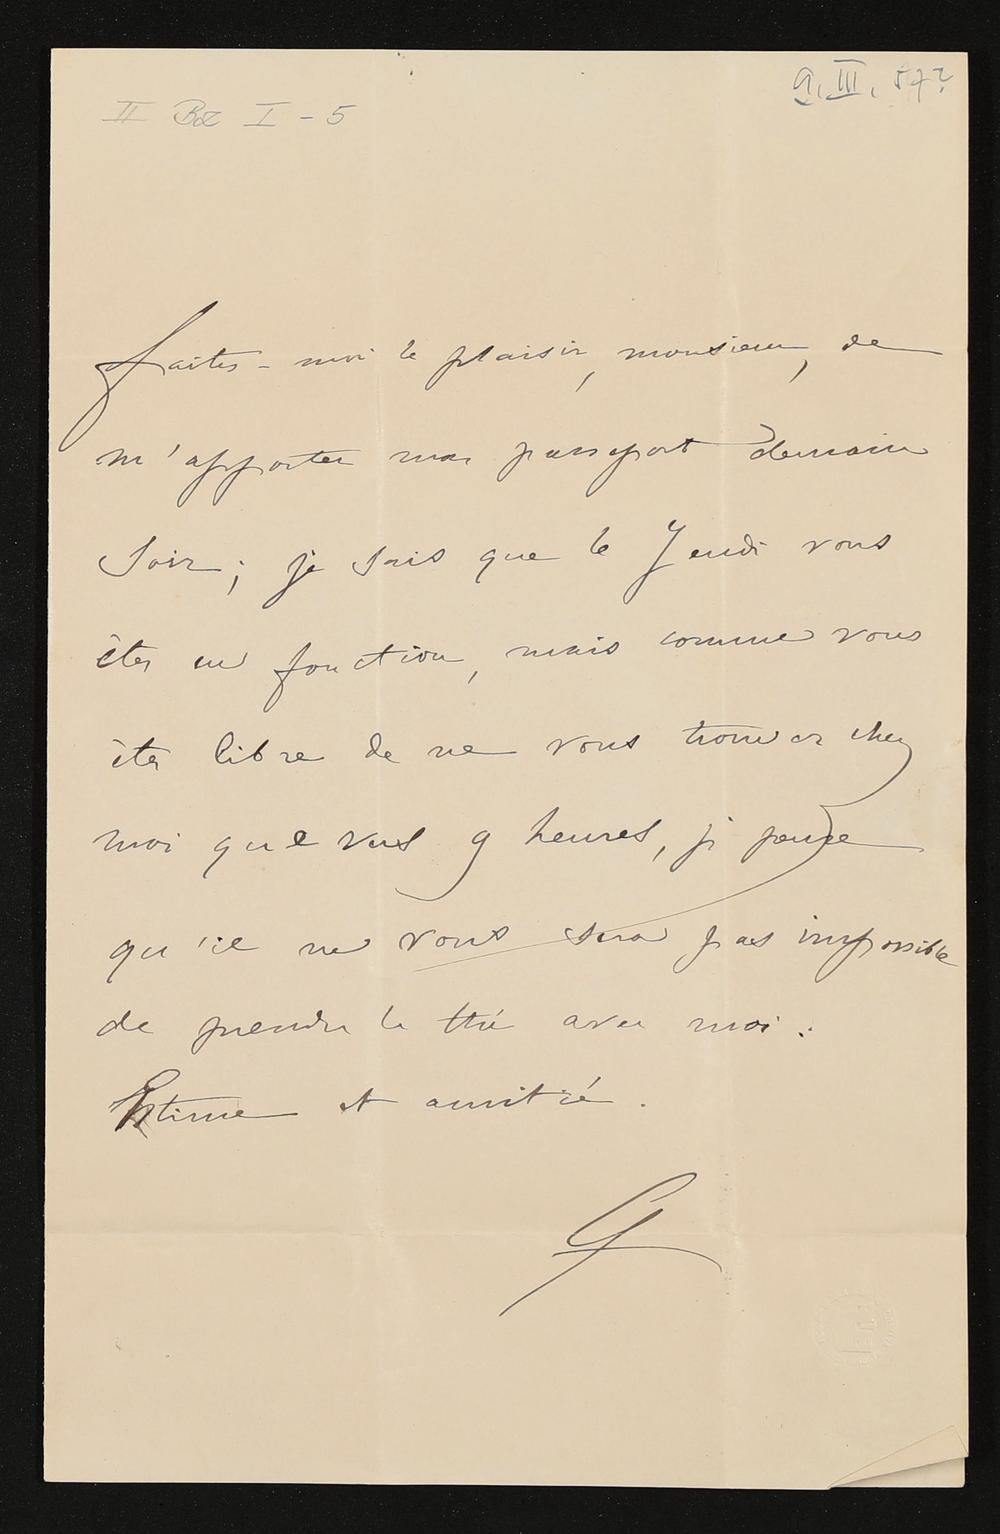 II Bz I - 5
9. III. 57?
Faites-moi le plaisir, monsieur, de
m'apporter mon passeport demain
Soir; je sais que le Jeudi vous
êtes en fonction, mais comme vous
êtes libre de ne vous trouver chez
moi que vers 9 heures, je pense
qu'il ne vous sera pas impossible
de prendre le thé avec moi.
Estime et amitié.
G